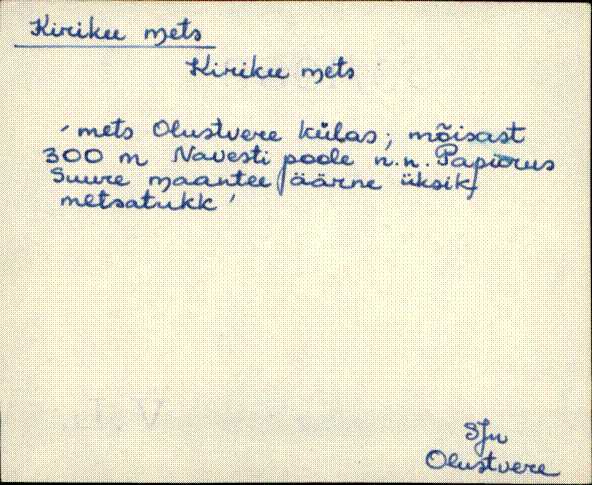 Kiriku mets
Kiriku mets
'mets Olustvere külas; mõisast
300 m Navesti poole n.n. Papiorus
Suure maantee äärne üksik
metsatukk'
SJn
Olustvere